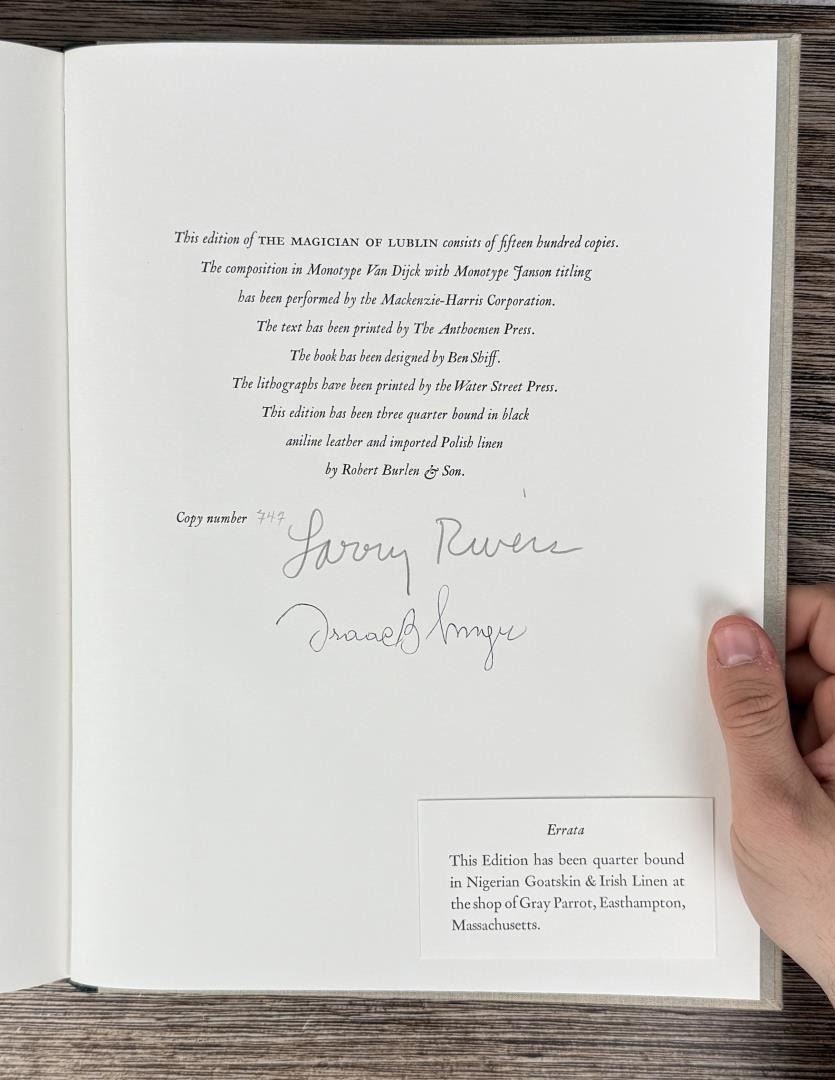 This edition of THE MAGICIAN OF LUBLIN consists of fifteen hundred copies.
The composition in Monotype Van Dijck with Monotype Janson titling
has been performed by the Mackenzie-Harris Corporation.
The text has been printed by The Anthoensen Press.
The book has been designed by Ben Shiff.
The lithographs have been printed by the Water Street Press.
This edition has been three quarter bound in black
aniline leather and imported Polish linen
by Robert Burlen & Son.
Copy number 747
Larry Rivers
Isaac B Singer
Errata
This Edition has been quarter bound
in Nigerian Goatskin & Irish Linen at
the shop of Gray Parrot, Easthampton,
Massachusetts.